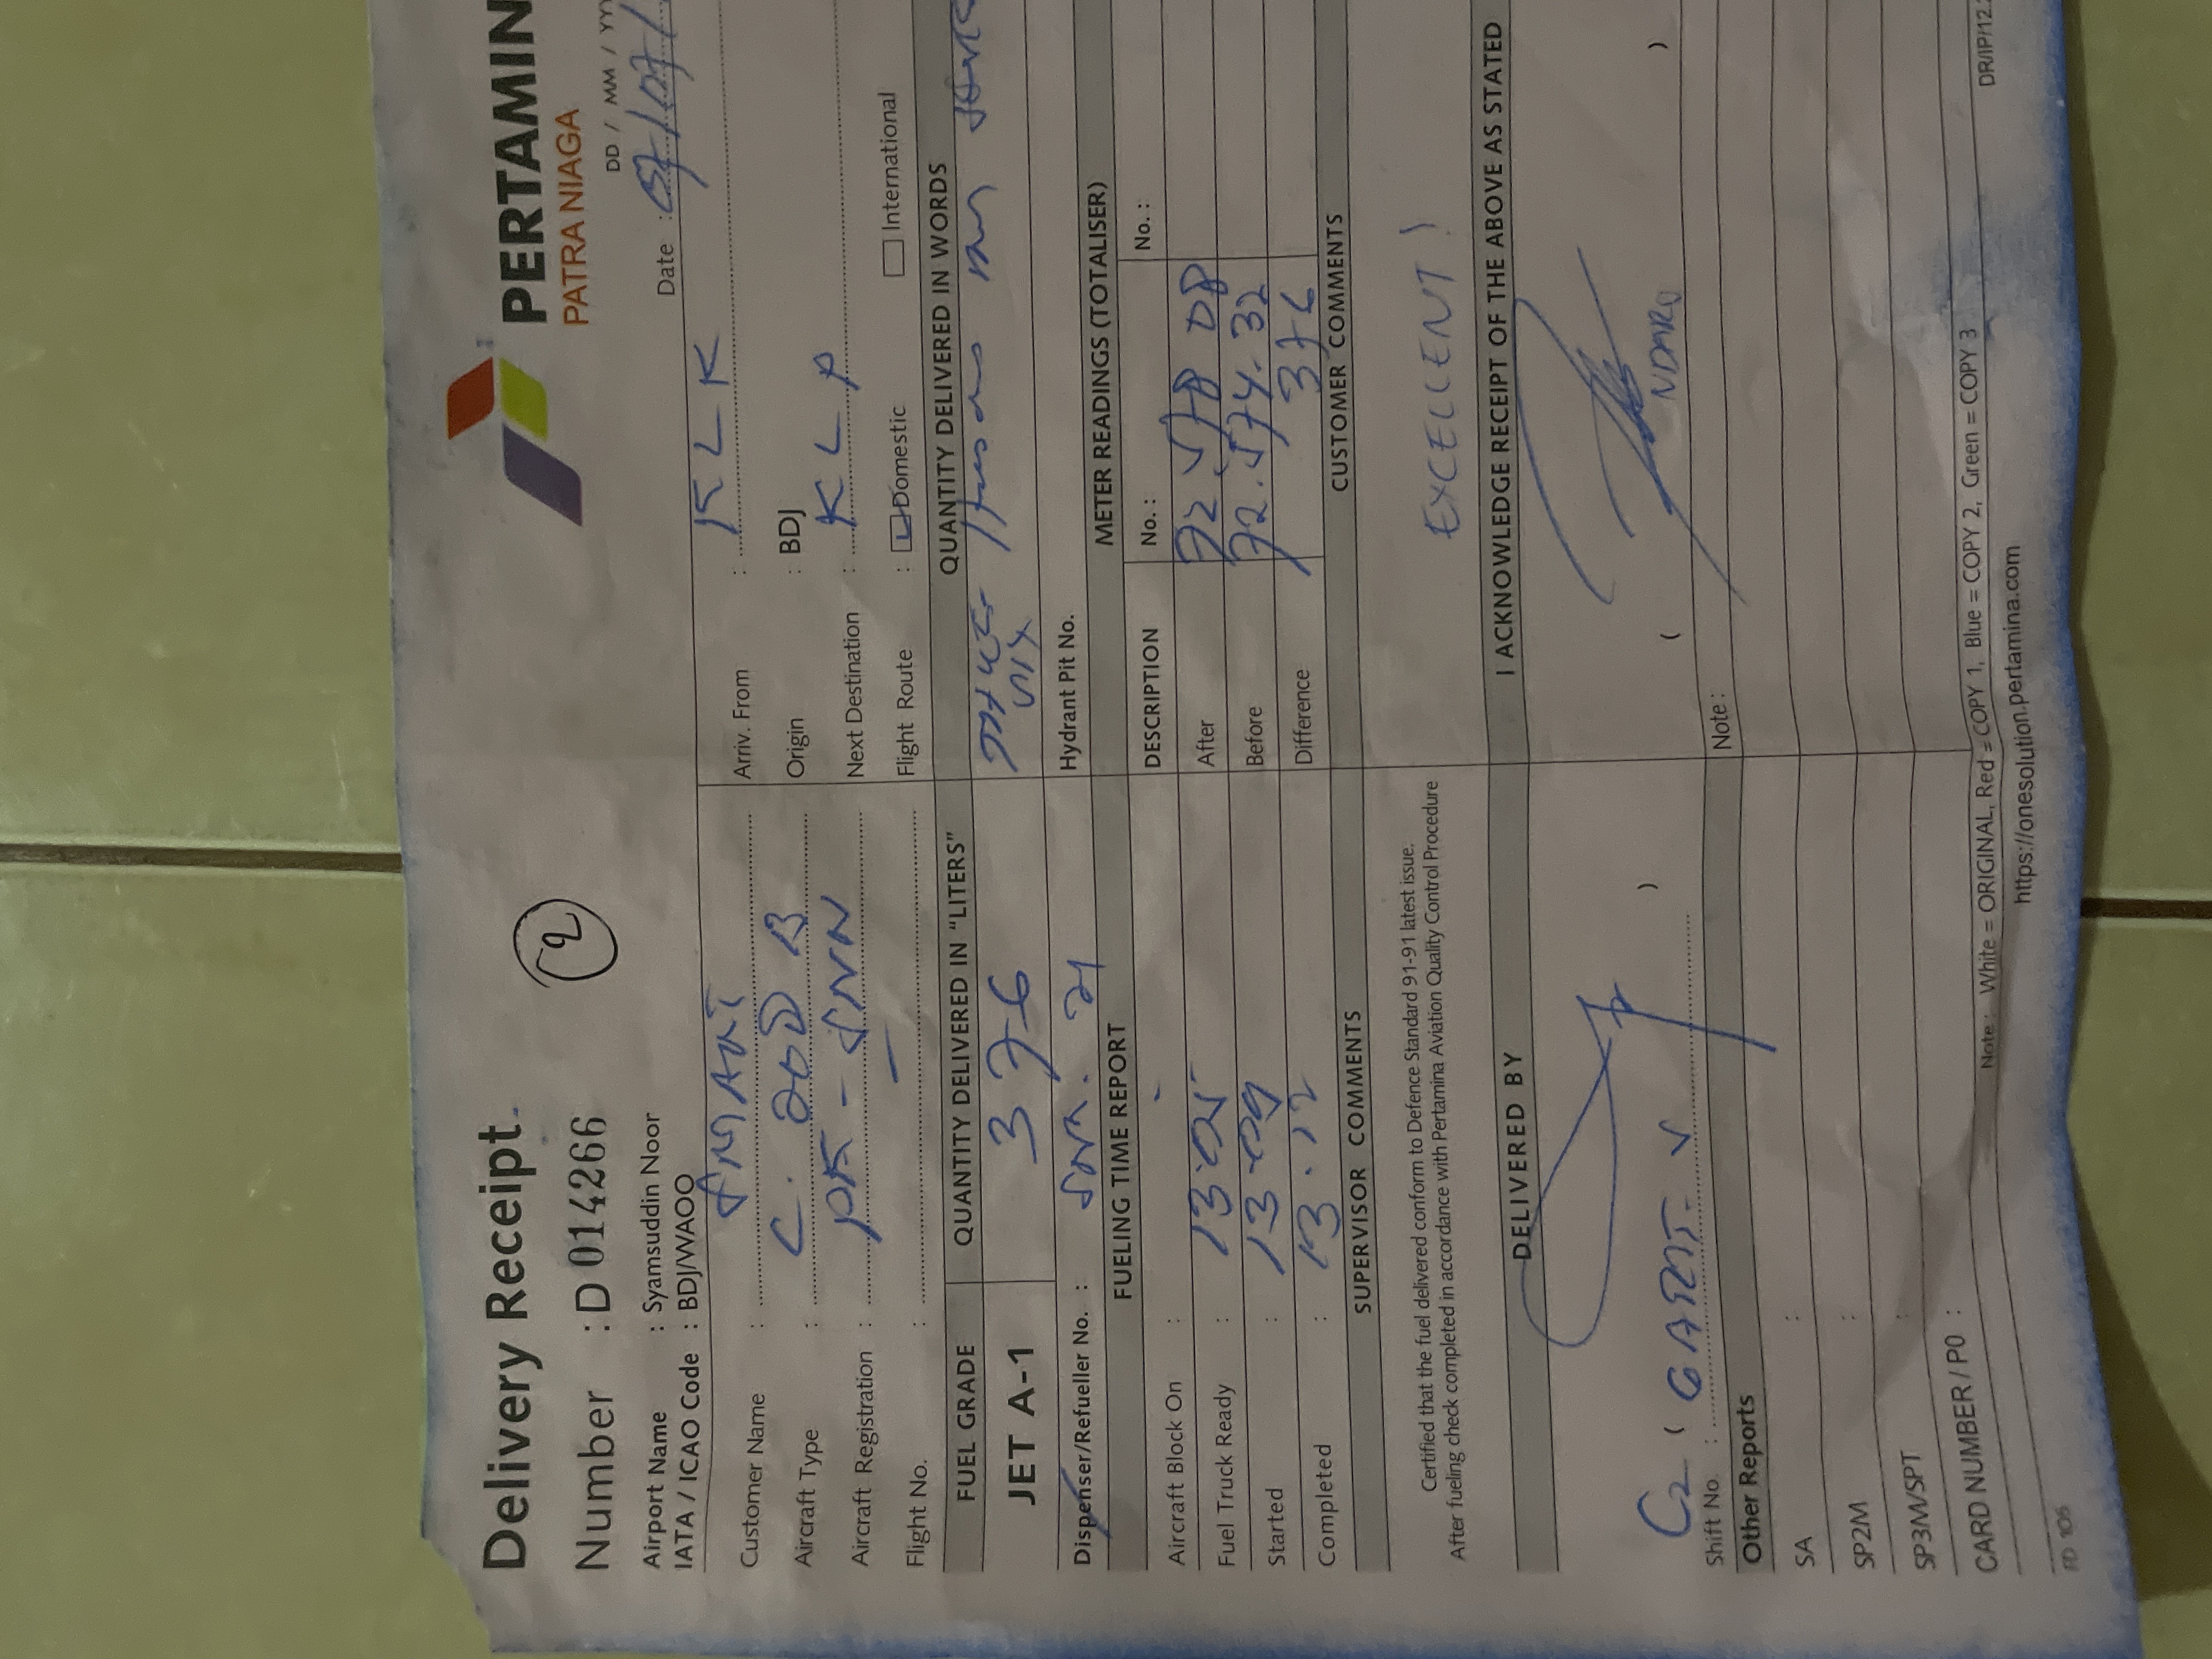 Delivery Receipt.
PERTAMIN
PATRA NIAGA
Number : D 014266
2
DD / MM / YY
Date : 07/07/
Airport Name : Syamsuddin Noor
IATA / ICAO Code : BDJ/WAOO
Customer Name : SMART
Aircraft Type : C. 208 B
Aircraft Registration : PK - SNN
Flight No. : —
Arriv. From : KLK
Origin : BDJ
Next Destination : KLP
Flight Route : Domestic International
FUEL GRADE
QUANTITY DELIVERED IN "LITERS"
QUANTITY DELIVERED IN WORDS
JET A-1
376
SIX
Dispenser/Refueller No. : 21
Hydrant Pit No.
FUELING TIME REPORT
METER READINGS (TOTALISER)
DESCRIPTION No. : No. :
Aircraft Block On :
Fuel Truck Ready : 13.05
Started : 13.09
Completed : 13.12
After
Before 72.574.32
Difference 376
SUPERVISOR COMMENTS
CUSTOMER COMMENTS
Certified that the fuel delivered conform to Defence Standard 91-91 latest issue.
After fueling check completed in accordance with Pertamina Aviation Quality Control Procedure
EXCELLENT !
DELIVERED BY
I ACKNOWLEDGE RECEIPT OF THE ABOVE AS STATED
C2 ( )
( NDARU )
Shift No. :
Note :
Other Reports
SA :
SP2M :
SP3M/SPT :
CARD NUMBER / PO :
Note : White = ORIGINAL, Red = COPY 1, Blue = COPY 2, Green = COPY 3
DR/IP/12.
https://onesolution.pertamina.com